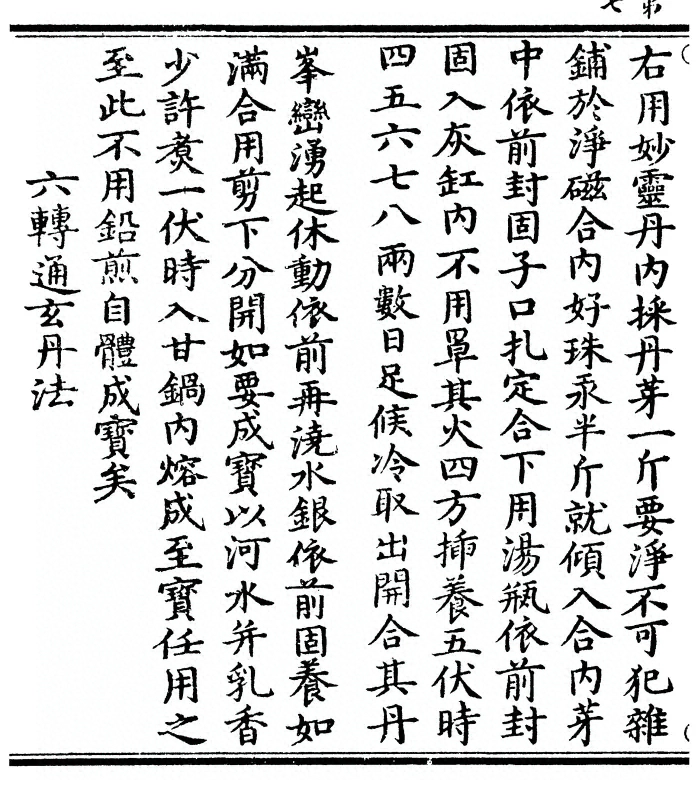 右用妙靈丹內採丹芽一斤要淨不可犯雜
鋪於淨磁合內好珠汞半斤就傾入合內芽
中依前封固子口扎定合下用湯瓶依前封
固入灰缸內不用罩其火四方揷養五伏時
四五六七八兩數日足候冷取出開合其丹
峯巒湧起休動依前再澆水銀依前固養如
滿合用剪下分開如要成寶以河水并乳香
少許煑一伏時入甘鍋內熔成至寶任用之
至此不用鉛煎自體成寶矣
六轉通玄丹法